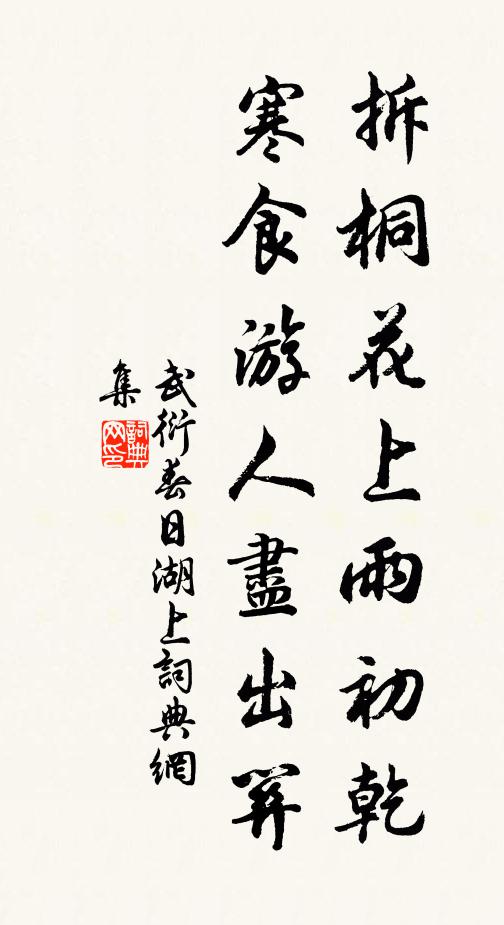 拆桐花上雨初乾
寒食游人盡出關
武衍春日湖上詞典網
集
詞典
网印